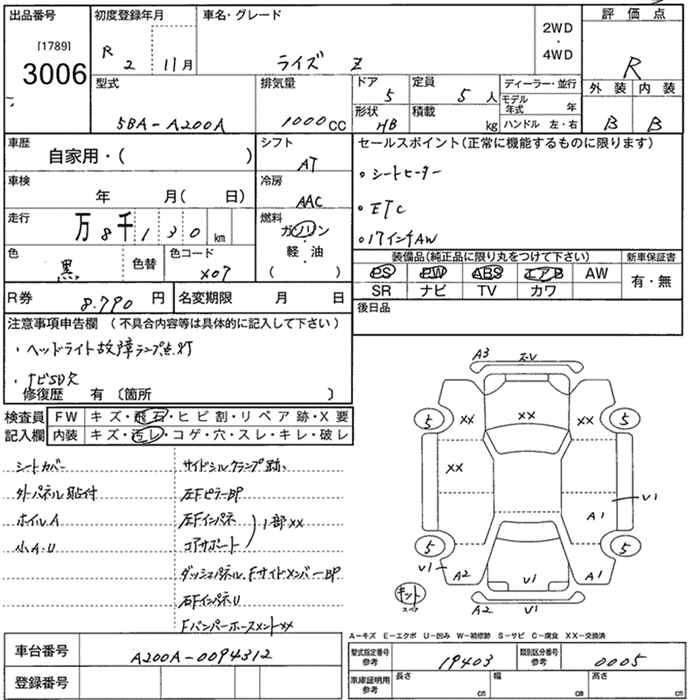 出品番号 初度登録年月 車名・グレード 評価点
[1789] 2WD
3006 R 2 11月 ライズ Z ・ R
4WD
型式 排気量 ドア 定員 ディーラー・並行 外装 内装
5BA-A200A 1000cc 5 5人 モデル年式 年 B B
形状 HB 積載 kg ハンドル 左・右
車歴 シフト セールスポイント(正常に機能するものに限ります)
自家用・( ) AT 。シートヒーター
車検 冷房
年 月( 日) AAC 。ETC
走行 燃料
万8千130km ガソリン 。17インチAW
色 色替 色コード 軽・油 装備品(純正品に限り丸をつけて下さい) 新車保証書
黒 X07 ( ) PS PW ABS エアB AW 有・無
SR ナビ TV カワ
R券 8.790円 名変期限 月 日 後日品
注意事項申告欄(不具合内容等は具体的に記入して下さい)
・ヘッドライト故障ランプ点灯
・ナビSD欠
修復歴 有〔箇所 〕
検査員 FW キズ・飛石・ヒビ割・リペア跡・X要
記入欄 内装 キズ・汚レ・コゲ・穴・スレ・キレ・破レ
シートカバー サイドシルクランプ跡
外パネル貼付 左FピラーBP
ホイルA 左Fインパネ
小A・U コアサポート 1部XX
ダッシュパネル、FサイドメンバーBP
右FインパネU
FバンパーホースメントXX
A3
XX XX XX
5 5
XX
V1
A1
5 5
V1 A2 V1 A1
キット
スペア
A2 V1
A-キズ E-エクボ U-凹み W-補修跡 S-サビ C-腐食 XX-交換済
車台番号 A200A-0094312
型式指定番号 参考 19403 類別区分番号 参考 0005
登録番号
車庫証明用 参考 長さ cm 幅 cm 高さ cm